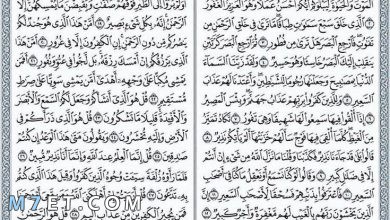 ٱلْمَوْتَ وَٱلْحَيَوٰةَ لِيَبْلُوَكُمْ أَيُّكُمْ أَحْسَنُ عَمَلًا وَهُوَ ٱلْعَزِيزُ ٱلْغَفُورُ
ٱلَّذِى خَلَقَ سَبْعَ سَمَٰوَٰتٍ طِبَاقًا مَّا تَرَىٰ فِى خَلْقِ ٱلرَّحْمَٰنِ مِن
تَفَٰوُتٍ فَٱرْجِعِ ٱلْبَصَرَ هَلْ تَرَىٰ مِن فُطُورٍ ثُمَّ ٱرْجِعِ ٱلْبَصَرَ كَرَّتَيْنِ
يَنقَلِبْ إِلَيْكَ ٱلْبَصَرُ خَاسِئًا وَهُوَ حَسِيرٌ وَلَقَدْ زَيَّنَّا ٱلسَّمَآءَ
ٱلدُّنْيَا بِمَصَٰبِيحَ وَجَعَلْنَٰهَا رُجُومًا لِّلشَّيَٰطِينِ وَأَعْتَدْنَا لَهُمْ عَذَابَ
ٱلسَّعِيرِ وَلِلَّذِينَ كَفَرُوا۟ بِرَبِّهِمْ عَذَابُ جَهَنَّمَ وَبِئْسَ ٱلْمَصِيرُ
إِذَآ أُلْقُوا۟ فِيهَا سَمِعُوا۟ لَهَا شَهِيقًا وَهِىَ تَفُورُ تَكَادُ تَمَيَّزُ
مِنَ ٱلْغَيْظِ كُلَّمَآ أُلْقِىَ فِيهَا فَوْجٌ سَأَلَهُمْ خَزَنَتُهَآ أَلَمْ يَأْتِكُمْ نَذِيرٌ
قَالُوا۟ بَلَىٰ قَدْ جَآءَنَا نَذِيرٌ فَكَذَّبْنَا وَقُلْنَا مَا نَزَّلَ ٱللَّهُ مِن شَىْءٍ إِنْ أَنتُمْ
إِلَّا فِى ضَلَٰلٍ كَبِيرٍ وَقَالُوا۟ لَوْ كُنَّا نَسْمَعُ أَوْ نَعْقِلُ مَا كُنَّا فِىٓ أَصْحَٰبِ
ٱلسَّعِيرِ فَٱعْتَرَفُوا۟ بِذَنۢبِهِمْ فَسُحْقًا لِّأَصْحَٰبِ ٱلسَّعِيرِ
إِنَّ ٱلَّذِينَ يَخْشَوْنَ رَبَّهُم بِٱلْغَيْبِ لَهُم مَّغْفِرَةٌ وَأَجْرٌ كَبِيرٌ
أَوَلَمْ يَرَوْا۟ إِلَى ٱلطَّيْرِ فَوْقَهُمْ صَٰٓفَّٰتٍ وَيَقْبِضْنَ مَا يُمْسِكُهُنَّ إِلَّا
ٱلرَّحْمَٰنُ إِنَّهُۥ بِكُلِّ شَىْءٍۭ بَصِيرٌ أَمَّنْ هَٰذَا ٱلَّذِى هُوَ جُندٌ لَّكُمْ
يَنصُرُكُم مِّن دُونِ ٱلرَّحْمَٰنِ إِنِ ٱلْكَٰفِرُونَ إِلَّا فِى غُرُورٍ أَمَّنْ هَٰذَا ٱلَّذِى
يَرْزُقُكُمْ إِنْ أَمْسَكَ رِزْقَهُۥ بَل لَّجُّوا۟ فِى عُتُوٍّ وَنُفُورٍ أَفَمَن
يَمْشِى مُكِبًّا عَلَىٰ وَجْهِهِۦٓ أَهْدَىٰٓ أَمَّن يَمْشِى سَوِيًّا عَلَىٰ صِرَٰطٍ
مُّسْتَقِيمٍ قُلْ هُوَ ٱلَّذِىٓ أَنشَأَكُمْ وَجَعَلَ لَكُمُ ٱلسَّمْعَ وَٱلْأَبْصَٰرَ
وَٱلْأَفْـِٔدَةَ قَلِيلًا مَّا تَشْكُرُونَ قُلْ هُوَ ٱلَّذِى ذَرَأَكُمْ فِى
ٱلْأَرْضِ وَإِلَيْهِ تُحْشَرُونَ وَيَقُولُونَ مَتَىٰ هَٰذَا ٱلْوَعْدُ إِن كُنتُمْ
صَٰدِقِينَ قُلْ إِنَّمَا ٱلْعِلْمُ عِندَ ٱللَّهِ وَإِنَّمَآ أَنَا۠ نَذِيرٌ مُّبِينٌ
فَلَمَّا رَأَوْهُ زُلْفَةً سِيٓـَٔتْ وُجُوهُ ٱلَّذِينَ كَفَرُوا۟ وَقِيلَ هَٰذَا ٱلَّذِى كُنتُم
بِهِۦ تَدَّعُونَ قُلْ أَرَءَيْتُمْ إِنْ أَهْلَكَنِىَ ٱللَّهُ وَمَن مَّعِىَ أَوْ رَحِمَنَا
فَمَن يُجِيرُ ٱلْكَٰفِرِينَ مِنْ عَذَابٍ أَلِيمٍ قُلْ هُوَ ٱلرَّحْمَٰنُ
M7ET.COM